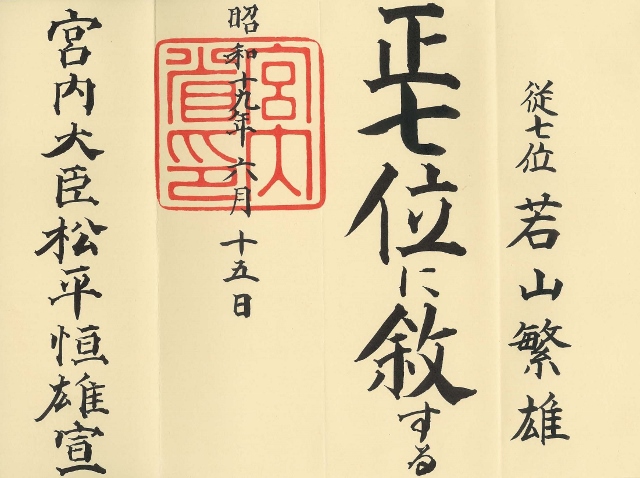 従七位 若山繁雄
正七位に敘する
昭和十九年六月十五日
宮内省印
宮内大臣松平恒雄宣